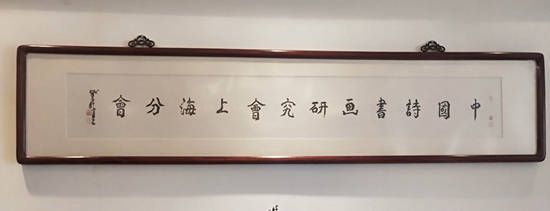 中國詩書画研究會上海分會